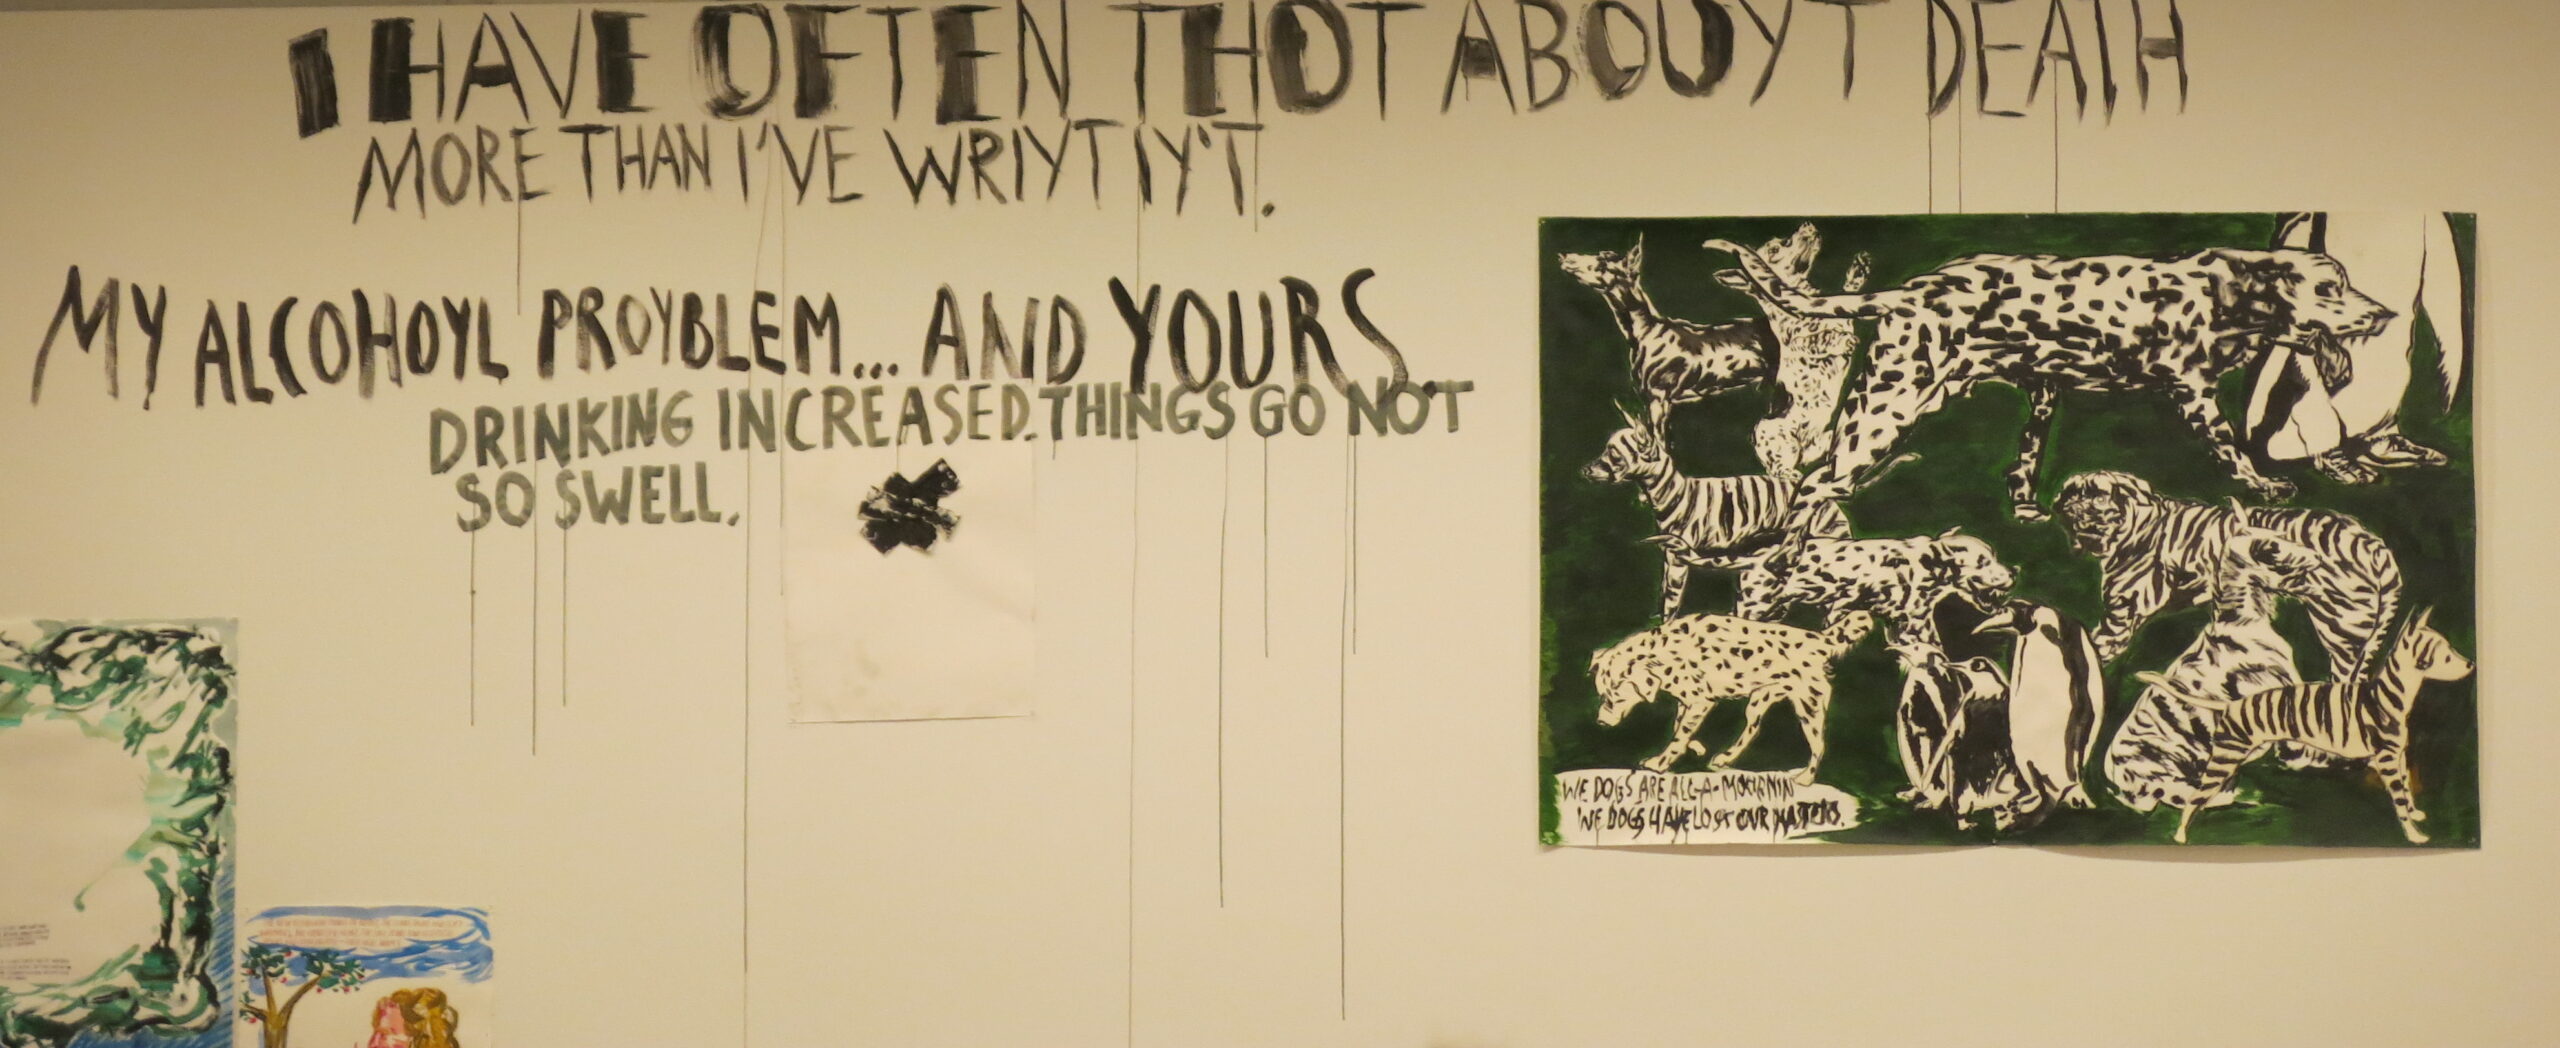 I HAVE OFTEN THOT ABOUYT DEATH
MORE THAN I'VE WRIYT IY'T.
MY ALCOHOYL PROYBLEM... AND YOURS.
DRINKING INCREASED. THINGS GO NOT
SO SWELL.
WE DOGS ARE ALL-A-MOURNIN
WE DOGS HAVE LOST OUR MASTERS.